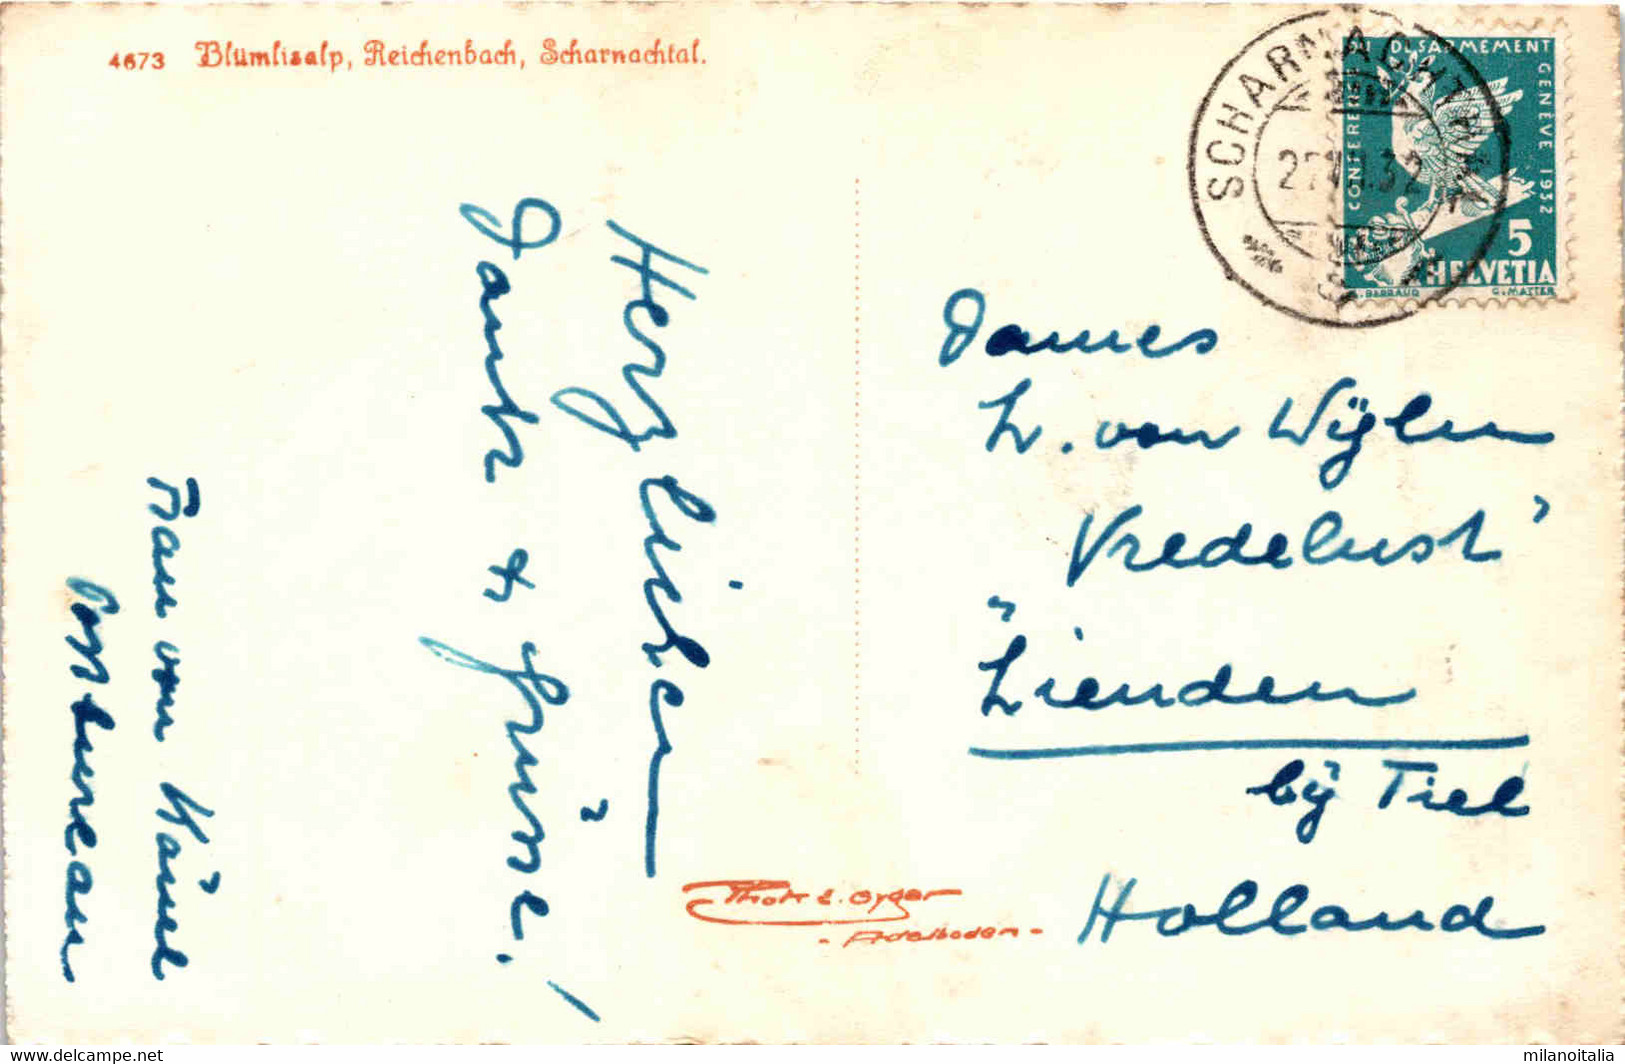 4673 Blümlisalp, Reichenbach, Scharnachtal.
SCHARNACHTHAL
CONFERENCE DU DESARMEMENT GENEVE 1932
5
HELVETIA
BARRAUD G. MATTER
Herzlichen
Dank & Grüsse!
Frau von Känel
Postbureau
Dames
L. van Wijlen
Vredelust"
"Lienden
bij Tiel
Holland
Phot. E. Gyger
- Adelboden -
delcampe.net
milanoitalia